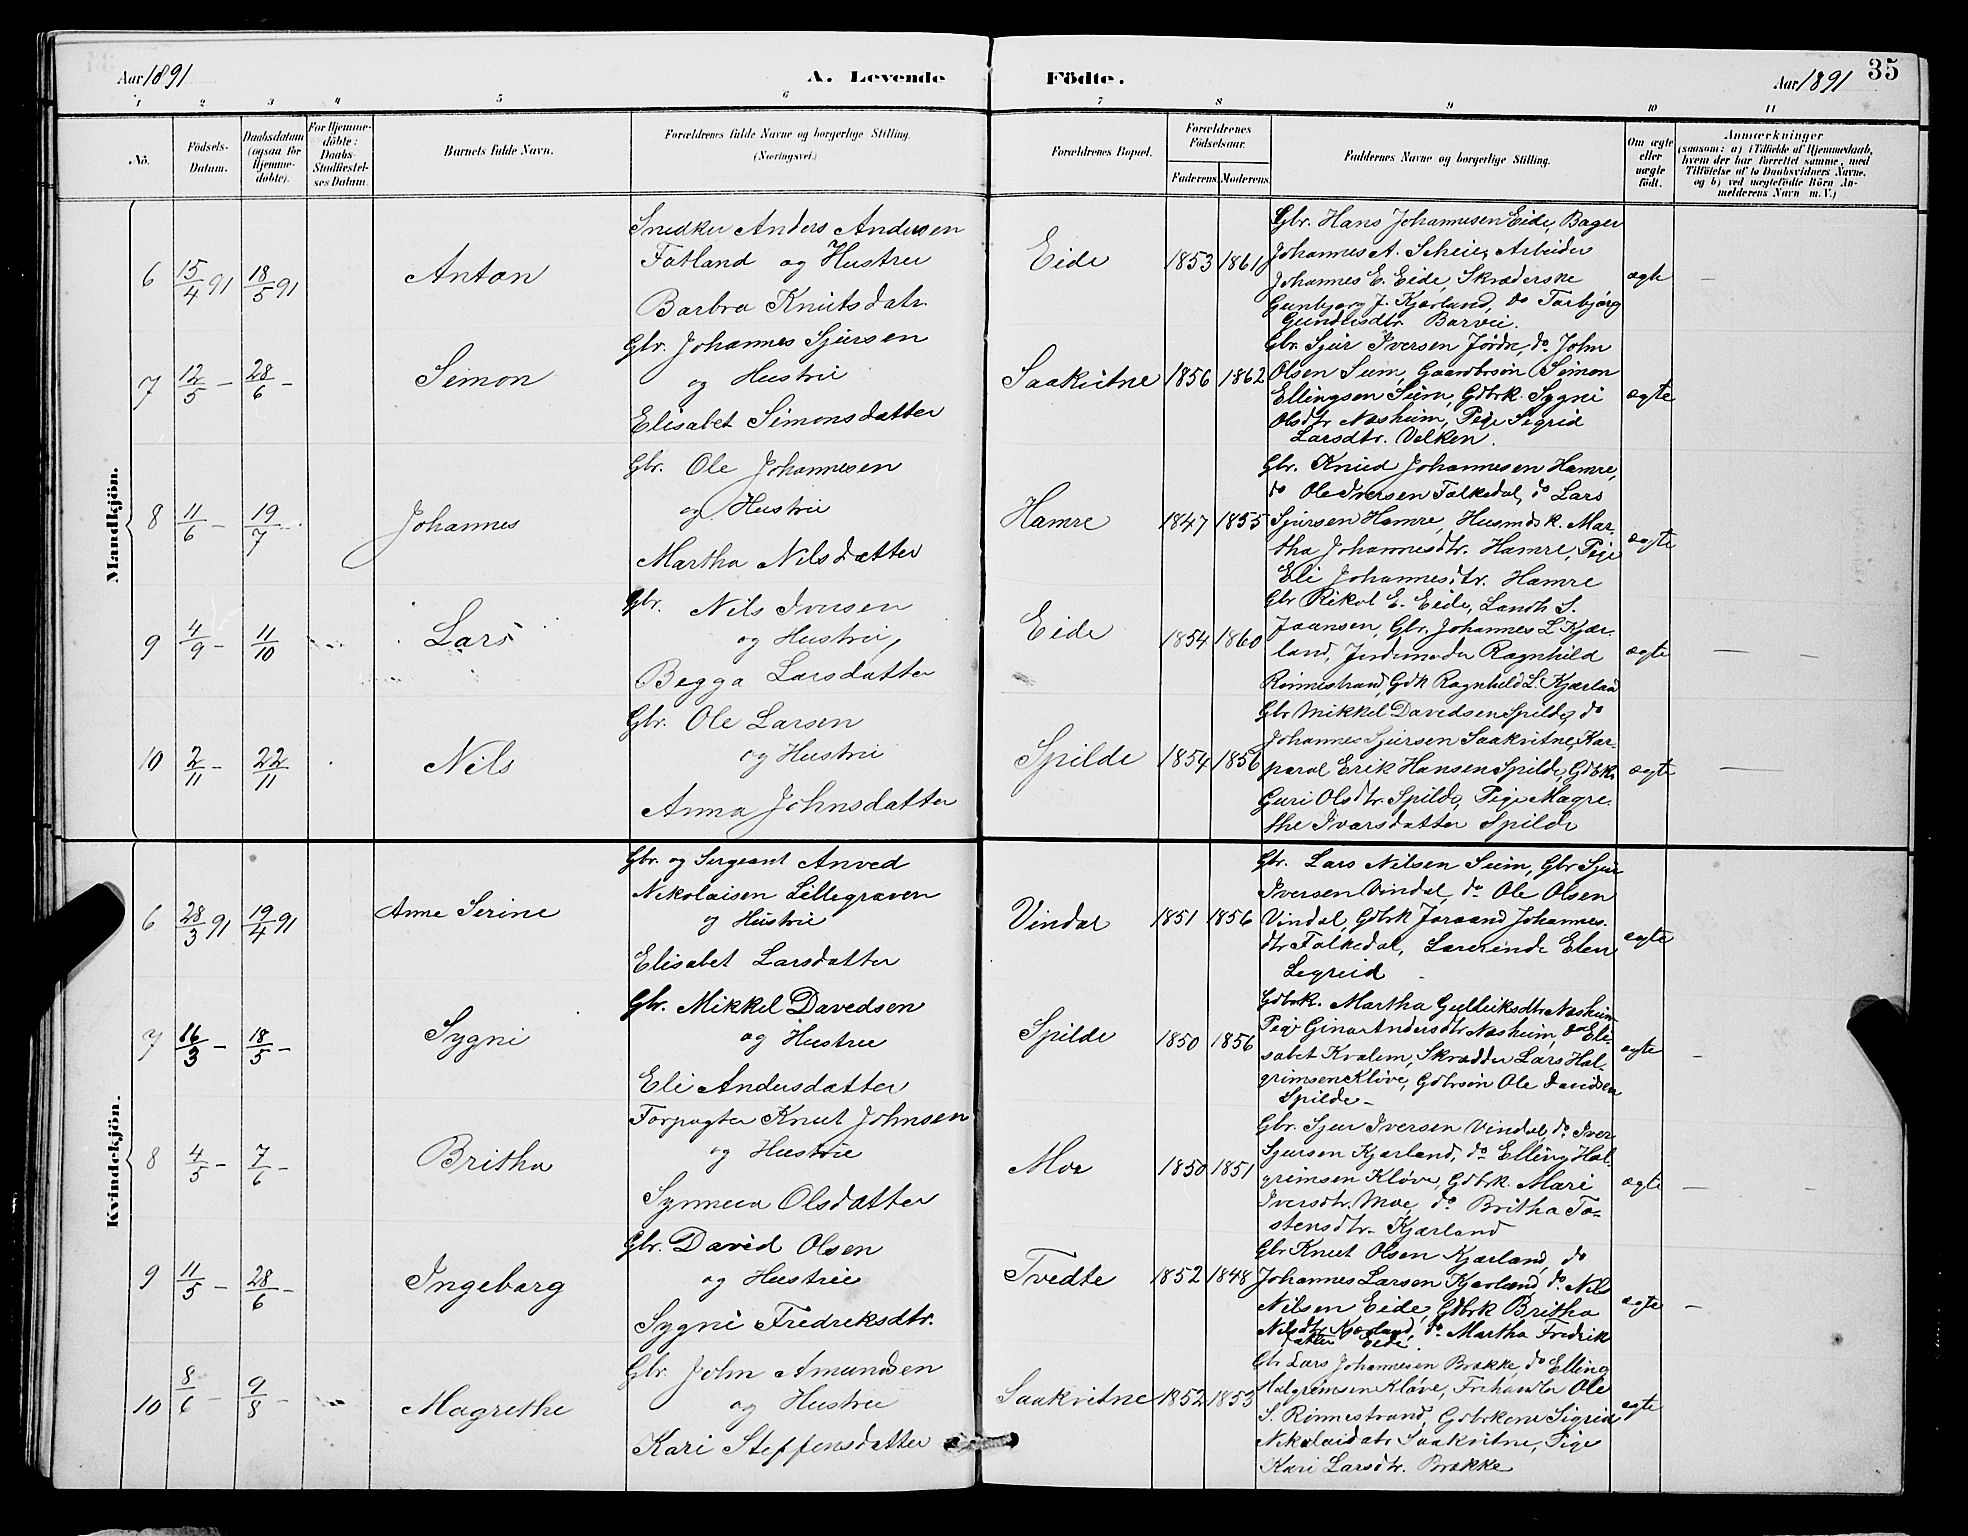 Aar 1891
A. Levende
Födte.
Aar 1891
35
1 2 3 4 5 6 7 8 9 10 11
No.
Födsels-Datum.
Daabsdatum (ogsaa for Hjemme-döbte).
For Hjemme-döbte: Daabs-Stadfæstel-ses Datum.
Barnets fulde Navn.
Forældrenes fulde Navne og borgerlige Stilling. (Næringsvei.)
Forældrenes Bopæl.
Forældrenes Födselsaar.
Faderens Moderens
Faddernes Navne og borgerlige Stilling.
Om ægte eller uægte födt.
Anmærkninger
(saasom: a) i Tilfælde af Hjemmedaab,
hvem der har forrettet samme, med
Tilföielse af to Daabsvidners Navne,
og b) ved uægtefödte Börn An-
melderens Navn m. V.)
Mandkjön.
6 15/4 91 18/5 91 Anton
Snedker Anders Andersen
Fatland og Hustru
Barbra Knutsdatr.
Eide 1853 1861
Gbr. Hans Johannesen Eide, Bager
Johannes A. Scheie, Arbeider
Johannes E. Eide, Skræderske
Gunbjorg J. Kjærland, do Torbjörg
Gundlesdtr. Barvei.
ægte —
7 12/5 – 28/6 – Simon
Gbr. Johannes Sjursen
og Hustru
Elisabet Simonsdatter
Saakvitne 1856 1862
Gbr. Sjur Iversen Jördre, do John
Olsen Seim, Gaardbrsön Simon
Ellingsen Seim, Gdbrk. Sygni
Olsdtr Næsheim, Pige Sigrid
Larsdtr. Velken.
ægte
8 11/6 – 19/7 – Johannes
Gbr. Ole Johannesen
og Hustru
Martha Nilsdatter
Hamre 1847 1855
Gbr. Knud Johannesen Hamre,
do Ole Iversen Folkedal, do Lars
Sjursen Hamre, Husmdsk. Mar-
tha Johannesdtr. Hamre, Pige
Eli Johannesdtr. Hamre
ægte
9 4/9 – 11/10 Lars
Gbr. Nils Jonsen
og Hustru,
Begga Larsdatter
Eide 1854 1860
Gbr Rikol E. Eide, Landh S.
Jaansen, Gbr. Johannes L Kjær-
land, Jordemoder Ragnhild
Rönnestrand, Gdk Ragnhild L. Kjærlan
ægte —
10 2/11 – 22/11 Nils
Gbr. Ole Larsen
og Hustru
Anna Johnsdatter
Spilde 1854 1856
Gbr Mikkel Davedsen Spilde, do
Johannes Sjursen Saakvitne, Kor-
poral Erik Hansen Spilde, Gdbrk.
Guri Olsdtr. Spilde, Pige Magre-
the Ivarsdatter Spilde
ægte —
Kvindekjön.
6 28/3 91 19/4 91 Anne Serine
Gbr. og Sergeant Anved
Nikolaisen Lillegraven
og Hustru
Elisabet Larsdatter
Vindal 1851 1856
Gbr. Lars Nilsen Seim, Gbr Sjur
Iversen Vindal, do Ole Olsen
Vindal, Gdbrk Joraand Johannes-
dtr Folkedal, Lærerinde Elen
Legreid
ægte
7 16/3 – 18/5 – Sygni
Gbr. Mikkel Davedsen
og Hustru
Eli Andersdatter
Spilde 1850 1856
Gdbrk. Martha Gulleiksdtr Næsheim
Pige Gina Andersdtr Næsheim, do Eli-
sabet Kvalem, Skrædder Lars Hal-
grimsen Klöve, Gdbrsön Ole Davidsen
Spilde –
ægte –
8 4/5 – 7/6 – Britha
Forpagter Knut Johnsen
og Hustru
Synneva Olsdatter
Moe 1850 1851
Gbr. Sjur Iversen Vindal, do Iver
Sjursen Kjærland, do Elling Hal-
grimsen Klöve, Gdbrk. Mari
Iversdtr. Moe, do Britha To-
stensdtr. Kjærland
ægte —
9 11/5 – 28/6 – Ingeborg
Gbr. David Olsen
og Hustru
Sygni Fredreksdtr.
Tvedte 1852 1848
Gbr Knut Olsen Kjærland, do
Johannes Larsen Kjærland, do. Nils
Nilsen Eide, Gdbrk Britha
Nilsdtr Kjærland, do. Martha Fredrik
datter Eide.
ægte –
10 8/6 – 9/8 – Magrethe
Gbr. John Amundsen
og Hustru
Kari Steffensdatter
Saakvitne 1852 1853
Gbr Lars Johannesen Brække, do Elling
Halgrimsen Klöve, Frihandler Ole
S. Rönnestrand, Gdbrkone Sigrid
Nikolaidatr Saakvitne, Pige
Kari Larsdtr. Brække
ægte